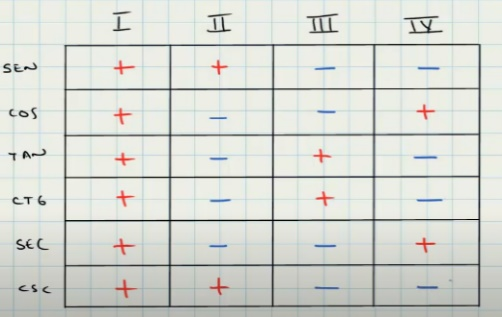 I II III IV
SEN + + − −
COS + − − +
TAN + − + −
CTG + − + −
SEC + − − +
CSC + + − −